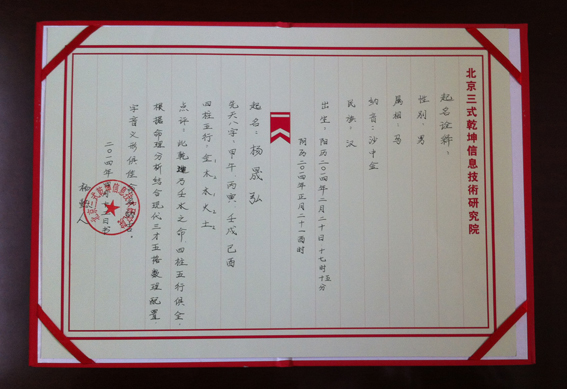 北京三式乾坤信息技術研究院
起名诠释：
性别：男
属相：马
纳音：沙中金
民族：汉
出生：阳历二〇一四年二月二十日十七时十五分
阴历二〇一四年正月二十一酉时
起名：杨晟弘
先天八字：甲午 丙寅 壬戌 己酉
四柱五行：金、木、水、火、土。
点评：此乾造乃壬水之命四柱五行俱全，
根据命理分析结合现代三才五格数理配置，
字音义形俱佳
二〇一四年